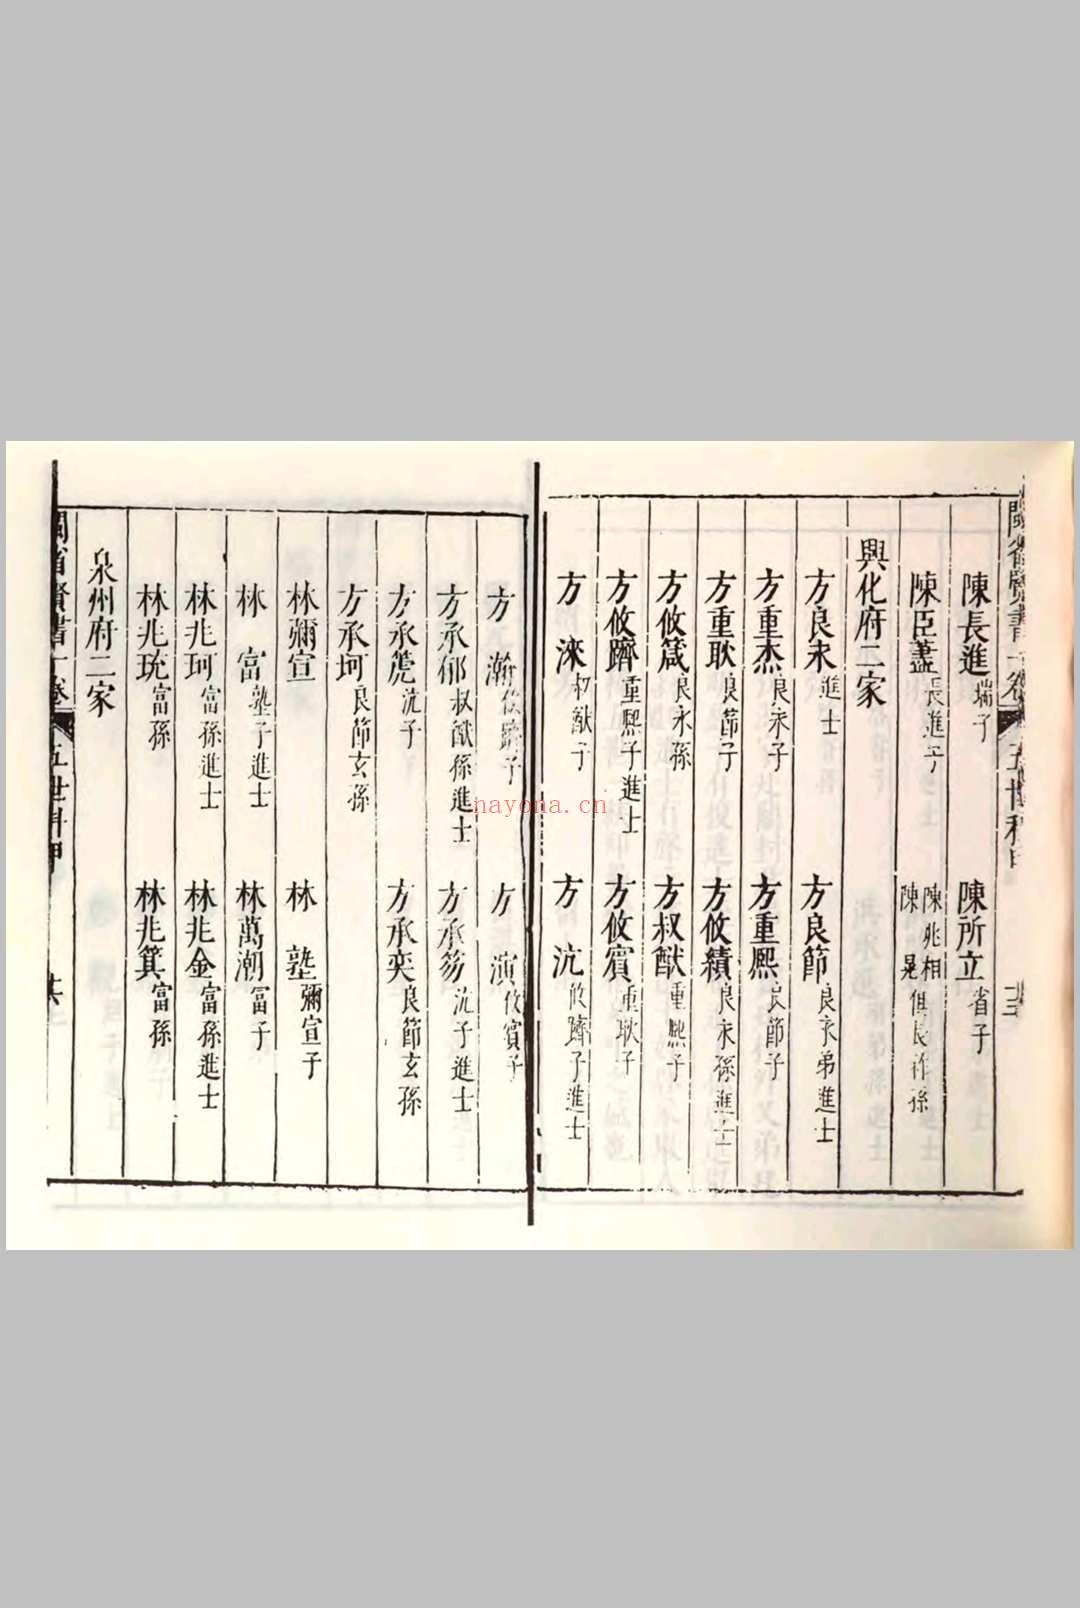 陳長進瑞子 陳所立省子
陳臣藎長進子 陳兆相 陳晃俱長祚孫
興化府二家
方良永進士 方良節良永弟進士
方重杰良永子 方重熙良節子
方重耿良節子 方攸績良永孫進士
方攸箴良永孫 方叔猷重熙子
方攸躋重熙子進士 方攸賓重耿子
方淶叔猷子 方沆攸躋子進士
方瀚攸躋子 方演攸賓子
方承郁叔猷孫進士 方承笏沆子進士
方承箎沆子 方承奕良節玄孫
方承坷良節玄孫
林彌宣 林塾彌宣子
林富塾子進士 林萬潮富子
林兆珂富孫進士 林兆金富孫進士
林兆珫富孫 林兆箕富孫
泉州府二家
閩省賢書一卷 五世科甲
nayona.cn